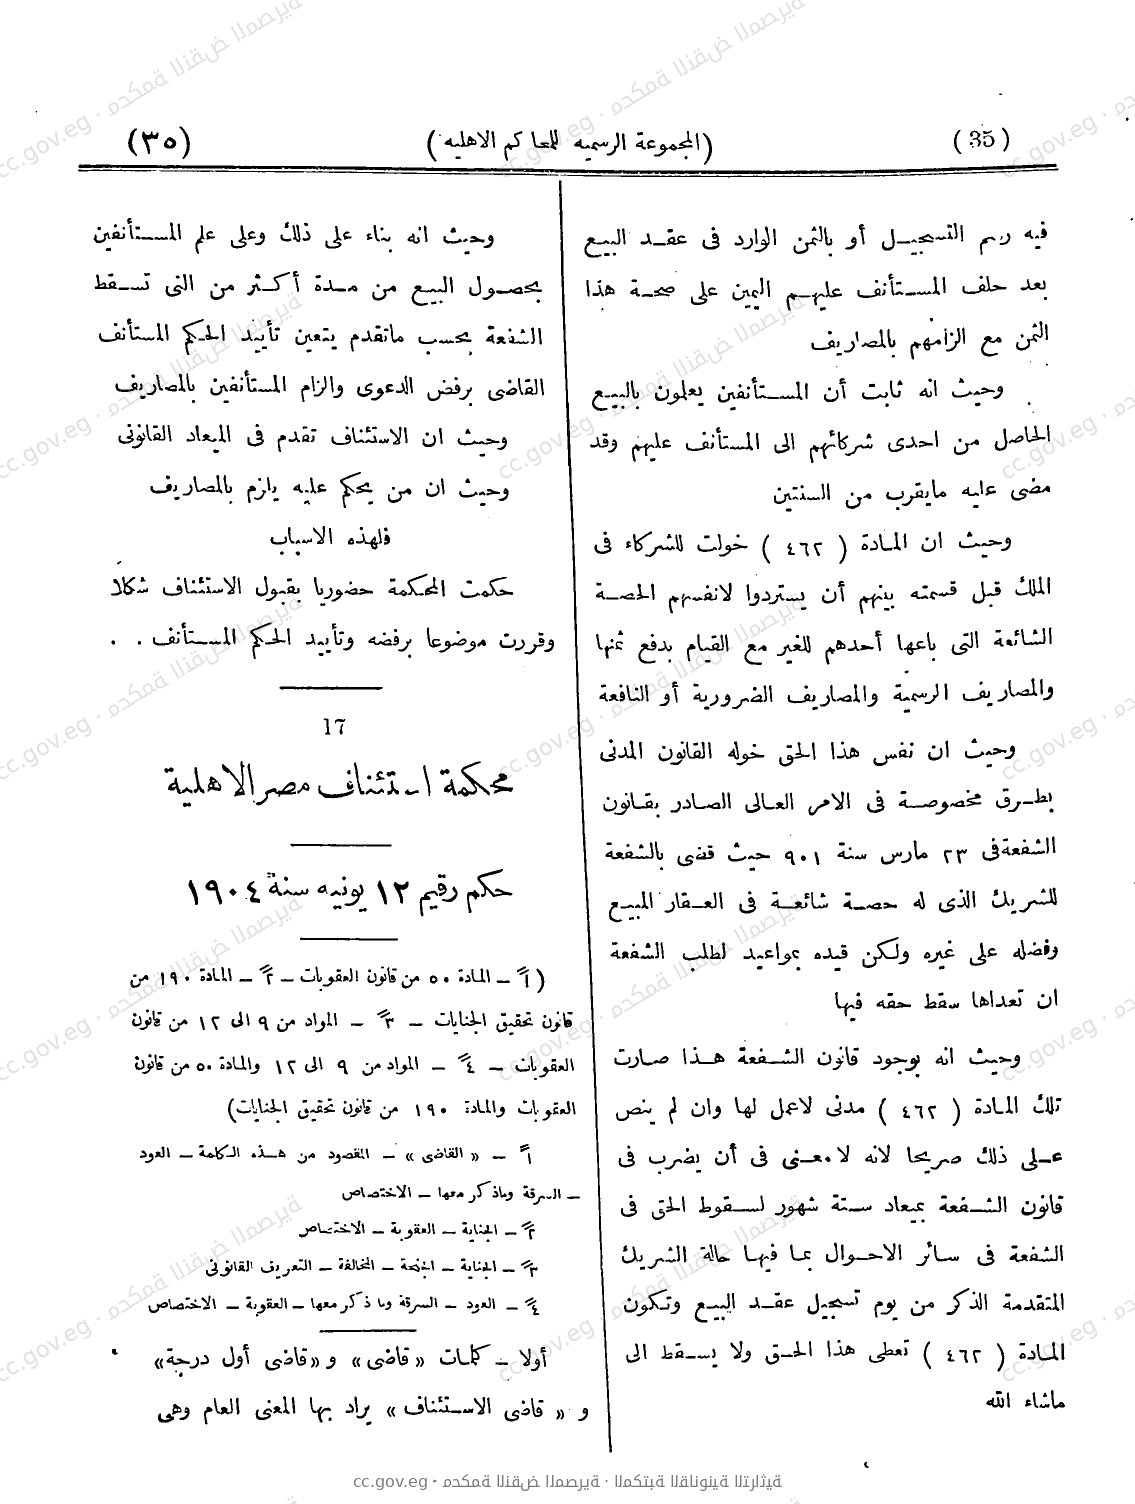 (35) (المجموعة الرسميه للمحاكم الاهليه) (٣٥)
فيه رسم التسجيــل أو بالثمن الوارد فى عقــد البيــع
بعد حلف المســتأنف عليهــم اليمين على صحــة هذا
الثمن مع الزامهم بالمصاريف
وحيث انه ثابت أن المســتأنفين يعلمون بالبيــع
الحاصل من احدى شركائهم الى المستأنف عليهم وقد
مضى عليه مايقرب من السنتين
وحيث ان المــادة (٤٦٢) خولت للشركاء فى
الملك قبل قسمته بينهم أن يستردوا لانفسهم الحصــة
الشائعة التى باعها أحدهم للغير مع القيام بدفع ثمنها
والمصاريف الرسمية والمصاريف الضرورية أو النافعة
وحيث ان نفس هذا الحق خوله القانون المدنى
بطــرق مخصوصــة فى الامر العــالى الصــادر بقــانون
الشفعةفى ٢٣ مارس سنة ٩٠١ حيث قضى بالشفعة
للشريك الذى له حصــة شائعــة فى العــقار المبيــع
وفضله على غيره ولكن قيده بمواعيد لطلب الشفعة
ان تعداها سقط حقه فيها
وحيث انه بوجود قانون الشــفعة هــذا صــارت
تلك المــادة (٤٦٢) مدنى لاعمل لها وان لم ينص
عــلى ذلك صريحا لانه لامعــنى فى أن يضرب فى
قانون الشــفعة بميعاد ســتة شهور لســقوط الحق فى
الشفعة فى ســائر الاحــوال بمــا فيهــا حالة الشريك
المتقدمة الذكر من يوم تسجيل عقــد البيــع وتكون
المــادة (٤٦٢) تعطى هذا الحــق ولا يســقط الى
ماشاء الله
وحيث انه بناء على ذلك وعلى علم المســتأنفين
بحصــول البيــع من مــدة أكــثر من التى تســقط
الشفعة بحسب ماتقدم يتعين تأييد الحكم المستأنف
القاضى برفض الدعوى والزام المستأنفين بالمصاريف
وحيث ان الاستئناف تقدم فى الميعاد القانونى
وحيث ان من يحكم عليه يلزم بالمصاريف
فلهذه الاسباب
حكمت المحكمة حضوريا بقبول الاستئناف شكلا
وقررت موضوعا برفضه وتأييد الحكم المســتأنف . .
17
محكمة استئناف مصر الاهلية
حكم رقيم ١٢ يونيه سنة ١٩٠٤
(١ً – المادة ٥٠ من قانون العقوبات – ٢ً – المادة ١٩٠ من
قانون تحقيق الجنايات – ٣ً – المواد من ٩ الى ١٢ من قانون
العقوبات – ٤ً – المواد من ٩ الى ١٢ والمادة ٥٠ من قانون
العقوبات والمادة ١٩٠ من قانون تحقيق الجنايات)
١ً – «القاضى» – المقصود من هــذه الكلمة – العود
– السرقة وماذكر معها – الاختصاص
٢ً – الجناية – العقوبة – الاختصاص
٣ً – الجناية – الجنحة – المخالفة – التعريف القانونى
٤ً – العود – السرقة وما ذكر معها – العقوبة – الاختصاص
أولا – كلمات «قاضى» و «قاضى أول درجة»
و «قاضى الاســتئناف» يراد بها المعنى العام وهى
cc.gov.eg · محكمة النقض المصرية · المكتبة القانونية التراثية